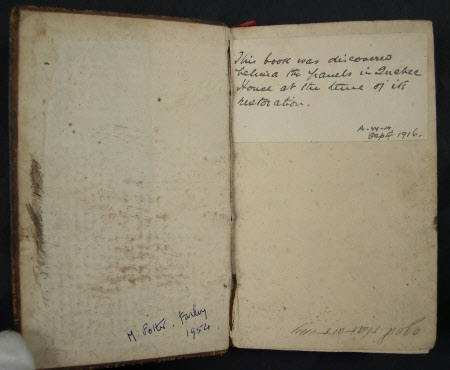 M. Potter. Farley
1954
This book was discovered
behind the panels in Quebec
House at the time of its
restoration.
A.W.A.
Sept 1916.